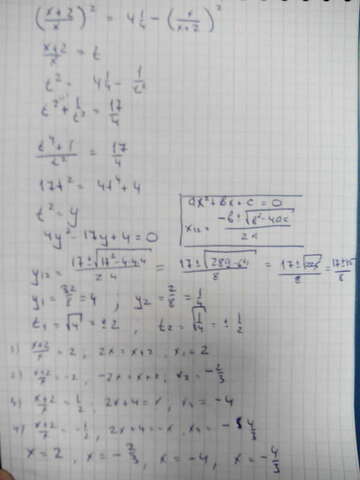 (x+2/x)² = 4 1/4 - (x/x+2)²
x+2/x = t
t² = 4 1/4 - 1/t²
t² + 1/t² = 17/4
t⁴+1/t² = 17/4
17t² = 4t⁴+4
t² = y
ax²+bx+c=0
4y² - 17y + 4 = 0
x₁₂ = -b±√b²-4ac/2a
y₁₂ = 17±√17²-4·4·4/2·4 = 17±√289-64/8 = 17±√225/8 = 17±15/8
y₁ = 32/8 = 4 , y₂ = 2/8 = 1/4
t₁ = √4 = ±2 , t₂ = √1/4 = ±1/2
1) x+2/x = 2 , 2x = x+2 , x₁ = 2
2) x+2/x = -2 , -2x = x+2 , x₂ = -2/3
3) x+2/x = 1/2 , 2x+4 = x , x₃ = -4
4) x+2/x = -1/2 , 2x+4 = -x , x₄ = -4/3
x = 2 , x = -2/3 , x = -4 , x = -4/3